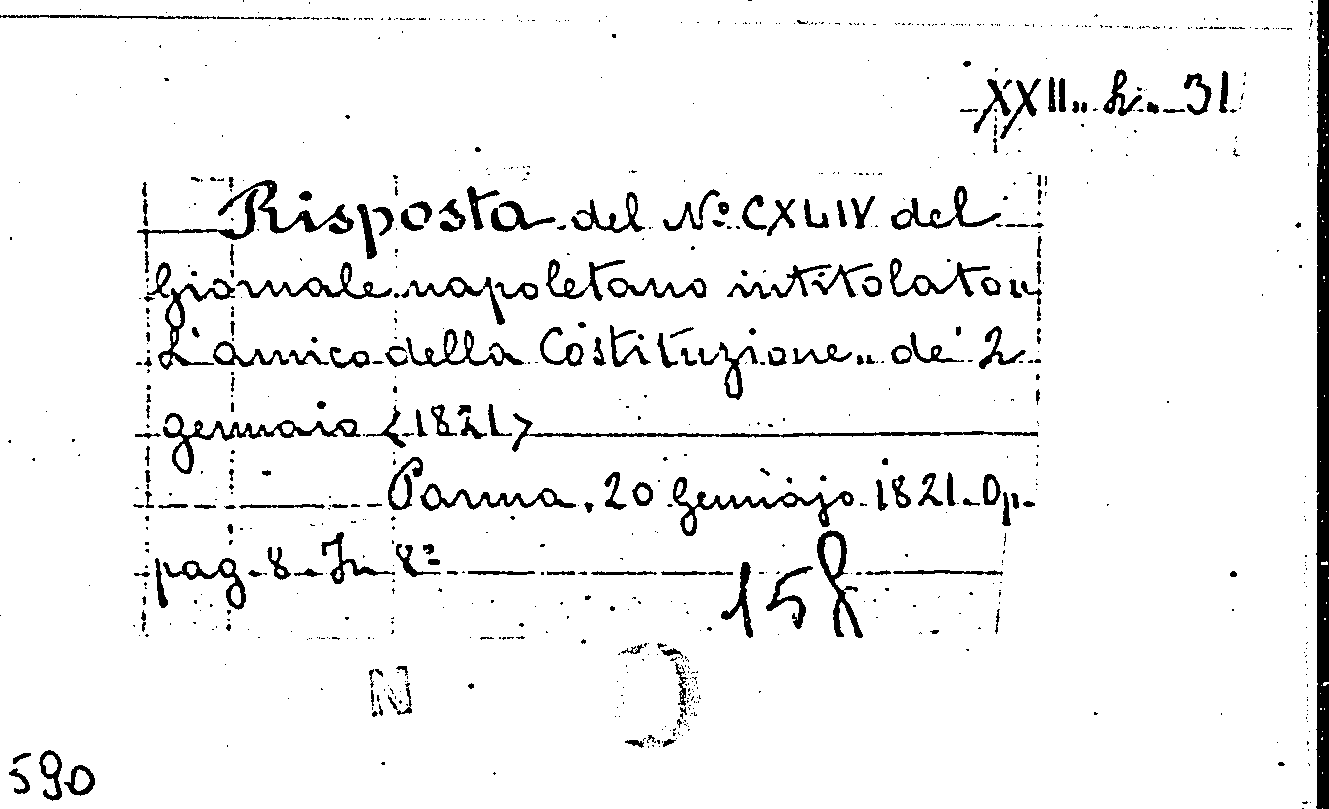 XXII. h. 31
Risposta del N.º CXLIV del
Giornale napoletano intitolato „
L'amico della Costituzione „ de' 2
gennaio <1821>
Parma, 20 Gennajo 1821. Op.
pag. 8. In 8º
158
N
590